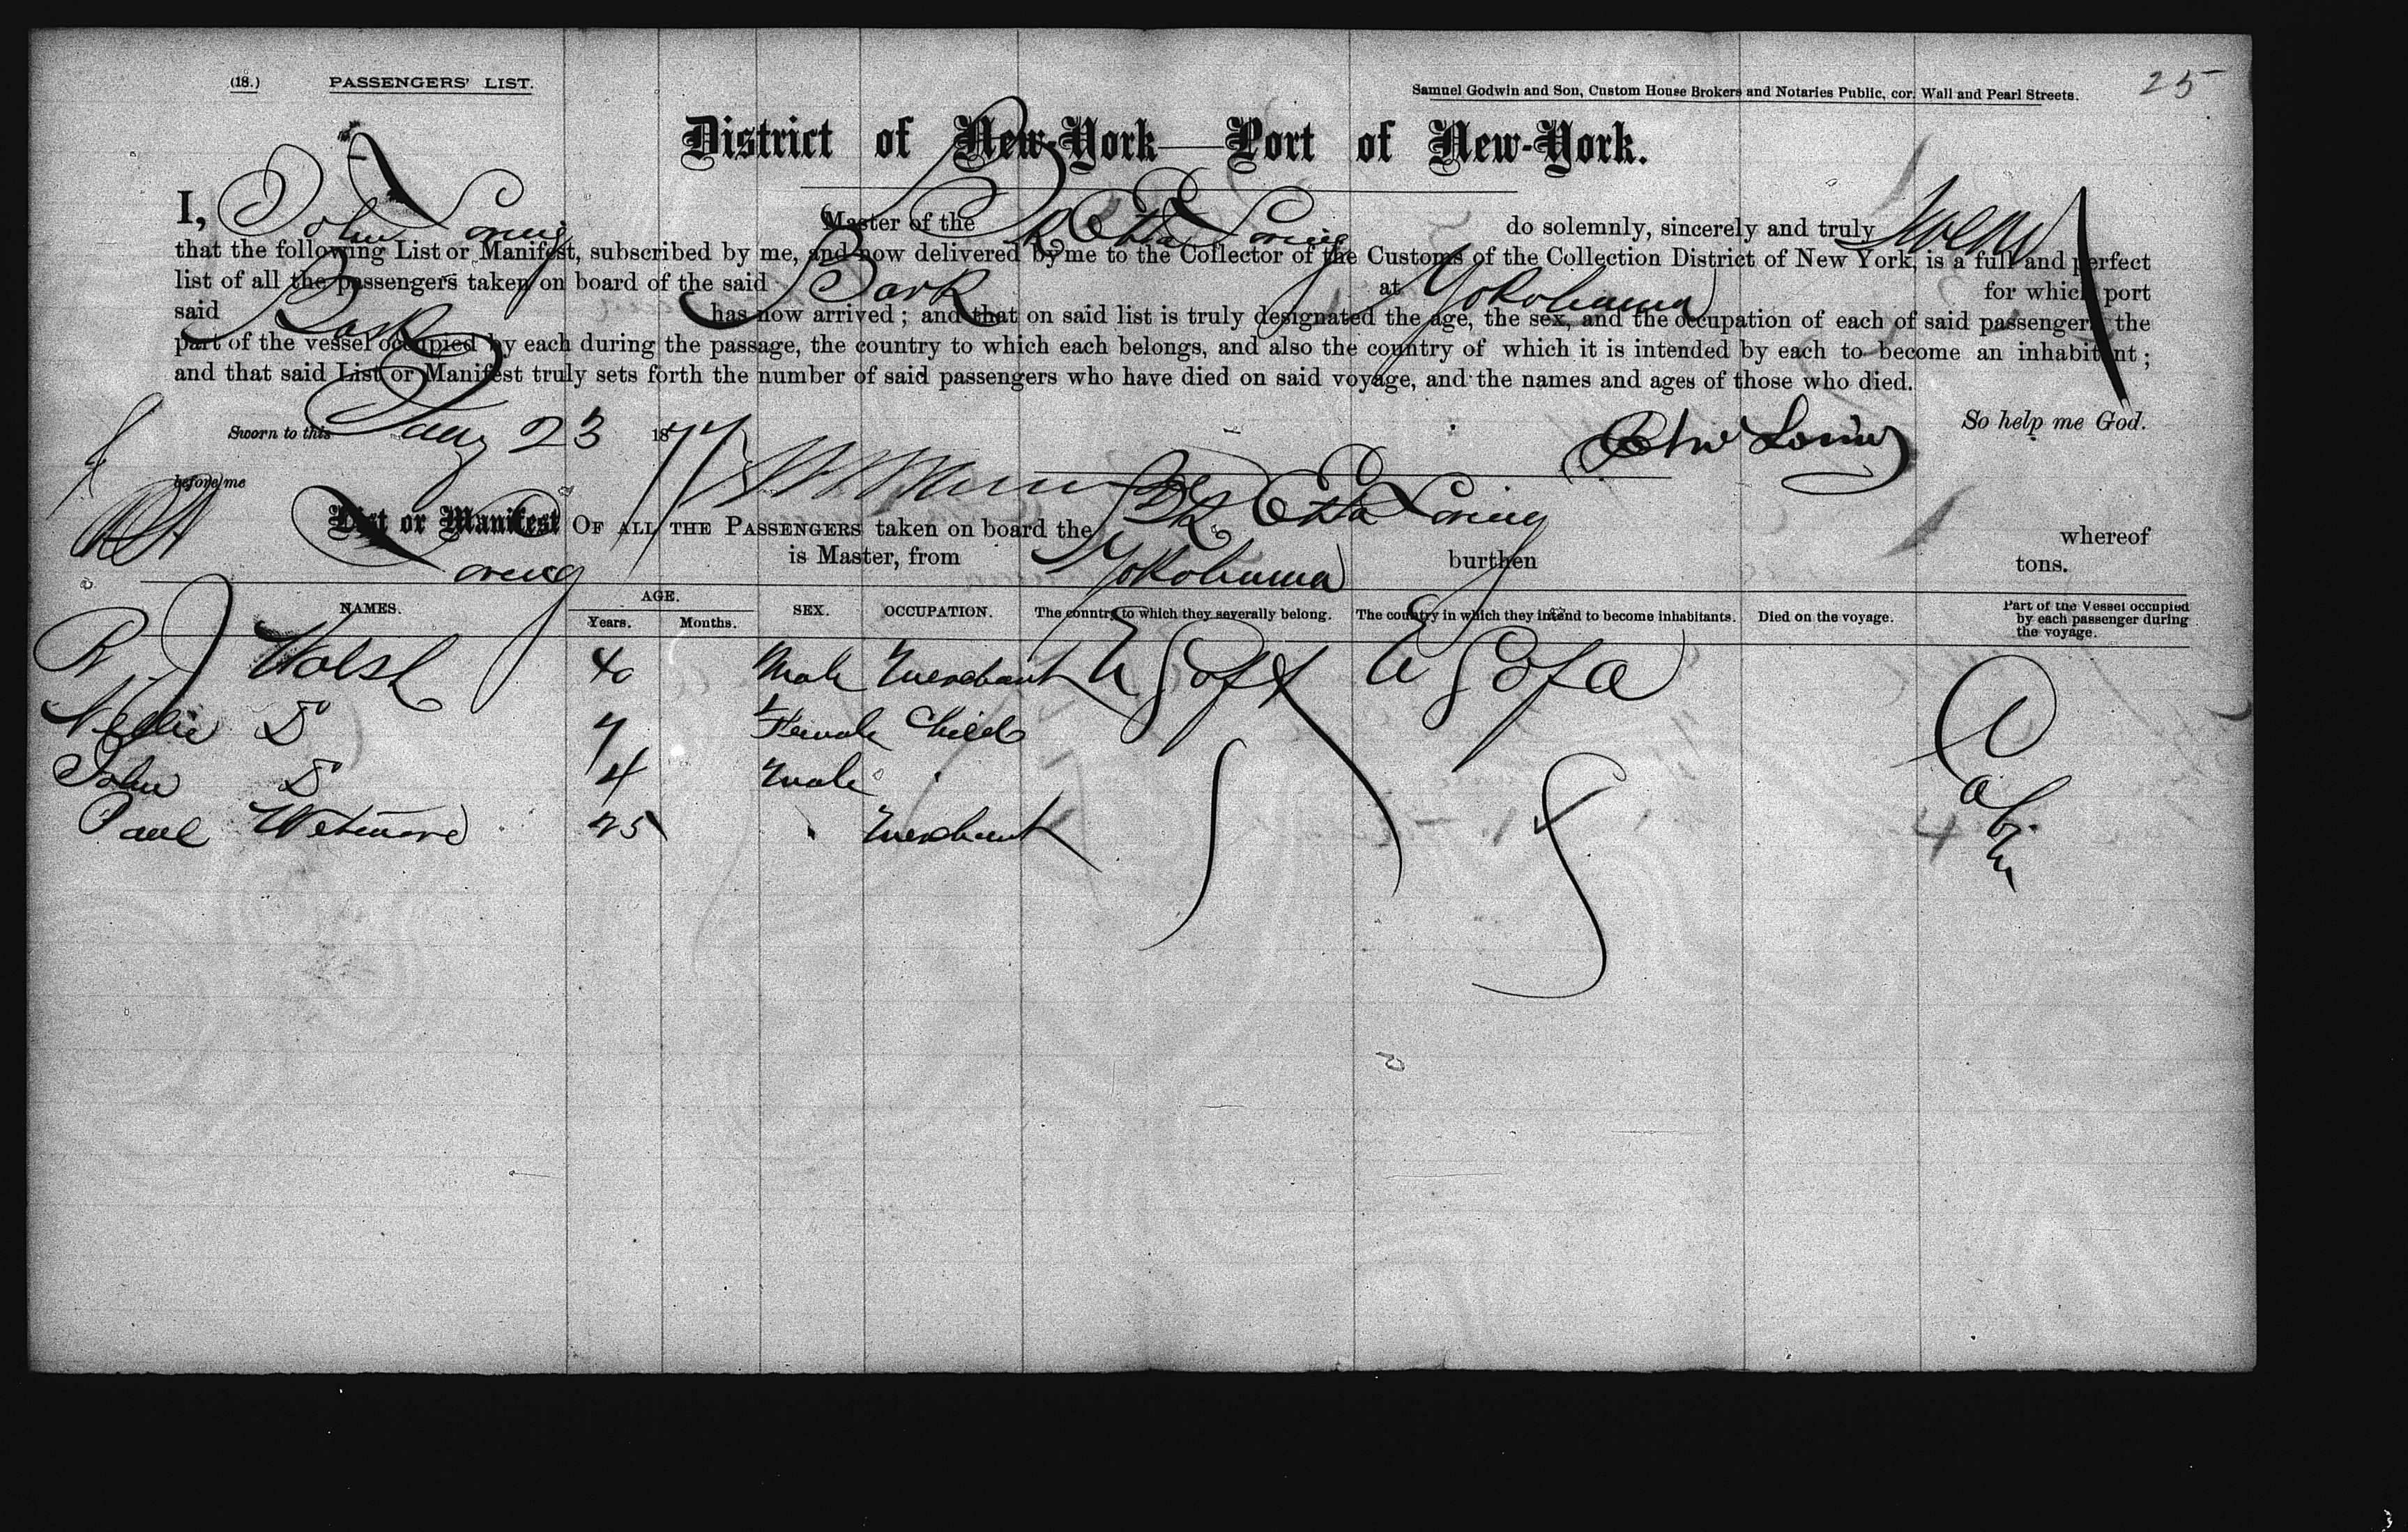 25
(18.) PASSENGERS' LIST. Samuel Godwin and Son, Custom House Brokers and Notaries Public, cor. Wall and Pearl Streets.
District of New-York—Port of New-York.
I, John Loring Master of the Bk Etta Loring do solemnly, sincerely and truly swear
that the following List or Manifest, subscribed by me, and now delivered by me to the Collector of the Customs of the Collection District of New York, is a full and perfect
list of all the passengers taken on board of the said Bark at Yokohama for which port
said Bark has now arrived; and that on said list is truly designated the age, the sex, and the occupation of each of said passengers the
part of the vessel occupied by each during the passage, the country to which each belongs, and also the country of which it is intended by each to become an inhabitant;
and that said List or Manifest truly sets forth the number of said passengers who have died on said voyage, and the names and ages of those who died.
So help me God.
Sworn to this Jany 23 1877 Jno Loring
before me
List or Manifest OF ALL THE PASSENGERS taken on board the Bk Etta Loring whereof
Loring is Master, from Yokohama burthen tons.
NAMES. AGE. Years. Months. SEX. OCCUPATION. The country to which they severally belong. The country in which they intend to become inhabitants. Died on the voyage. Part of the Vessel occupied by each passenger during the voyage.
R J Walsh 40 Male Merchant U S of A U S of A
Nellie D 7 Female Child
John D 4 Male "
Paul Wetmore 25 " Merchant
Cabin
4